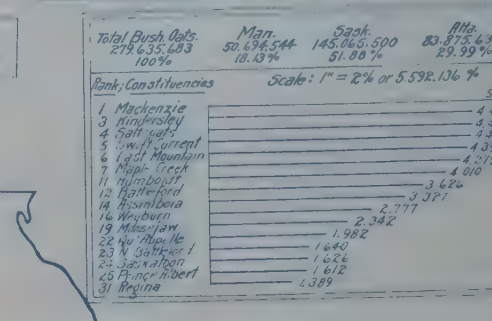 Total Bush. Oats. Man. Sask. Alta.
279.635.683 50.694.544 145.065.500 83.875.63
100% 18.13% 51.88% 29.99%
Rank; Constituencies Scale: 1" = 2% or 5.592.136 %
1 Mackenzie
3 Kindersley
4 Saltcoats
5 Swift Current
6 Last Mountain 4.21
7 Maple Creek 4.010
11 Humboldt 3.626
12 Battleford 3.327
14 Assiniboia 2.777
16 Weyburn 2.342
19 Moosejaw 1.982
22 Qu'Appelle 1.640
23 N. Battleford 1.626
24 Saskatoon 1.612
25 Prince Albert 1.389
31 Regina